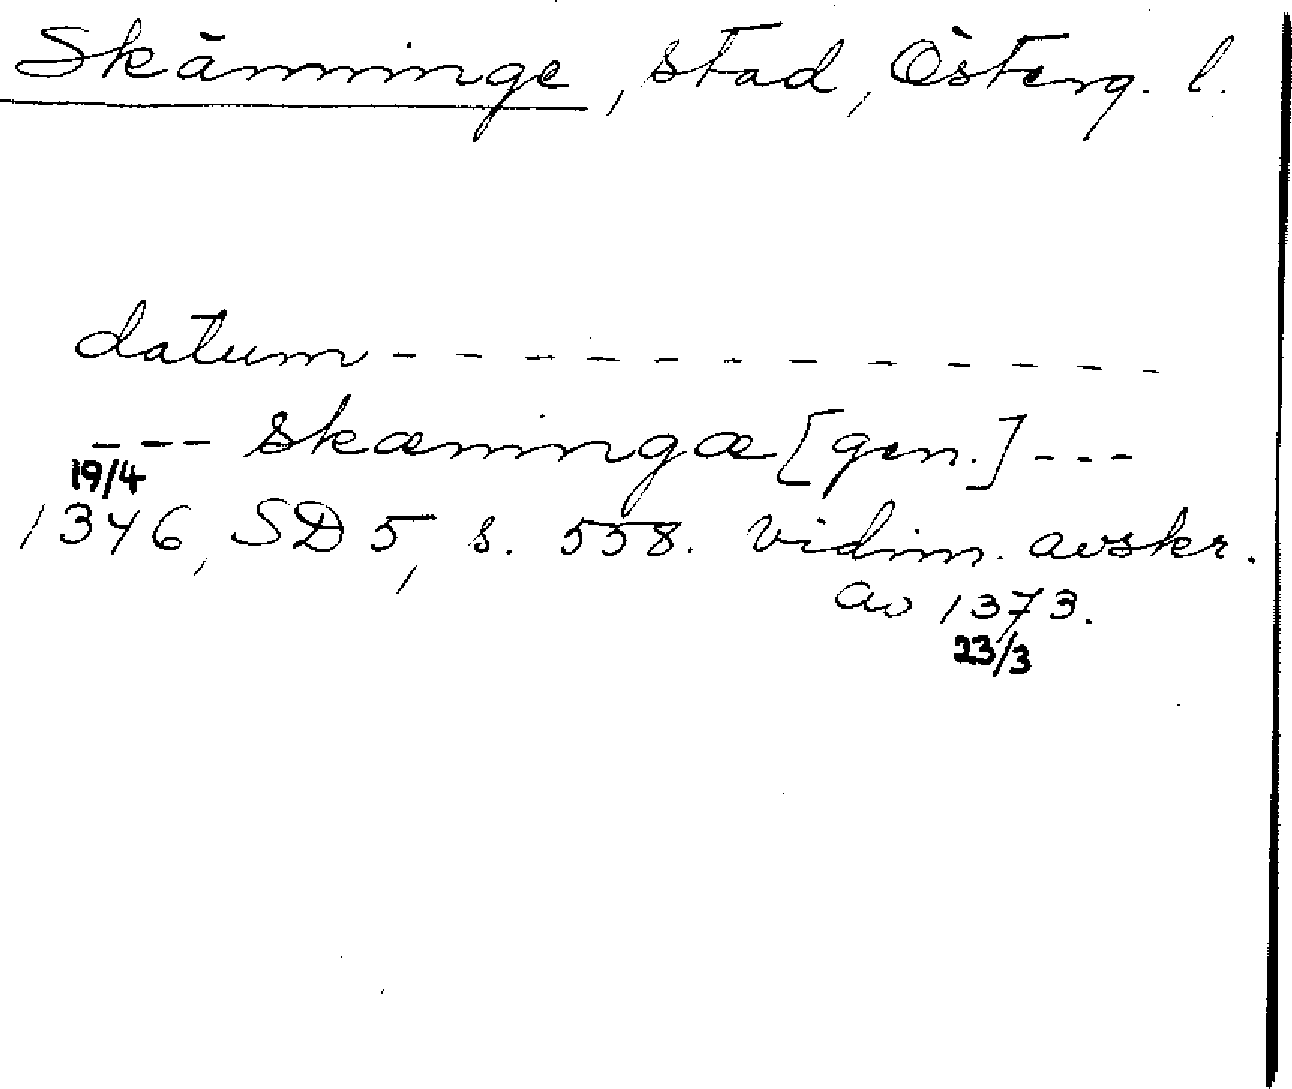 Skänninge, stad, Österg. l.
datum - - - - - - - - - - - -
- - - skæningæ [gen.] - - -
19/4
1346, SD 5, s. 558. vidim. avskr.
av 1373.
23/3